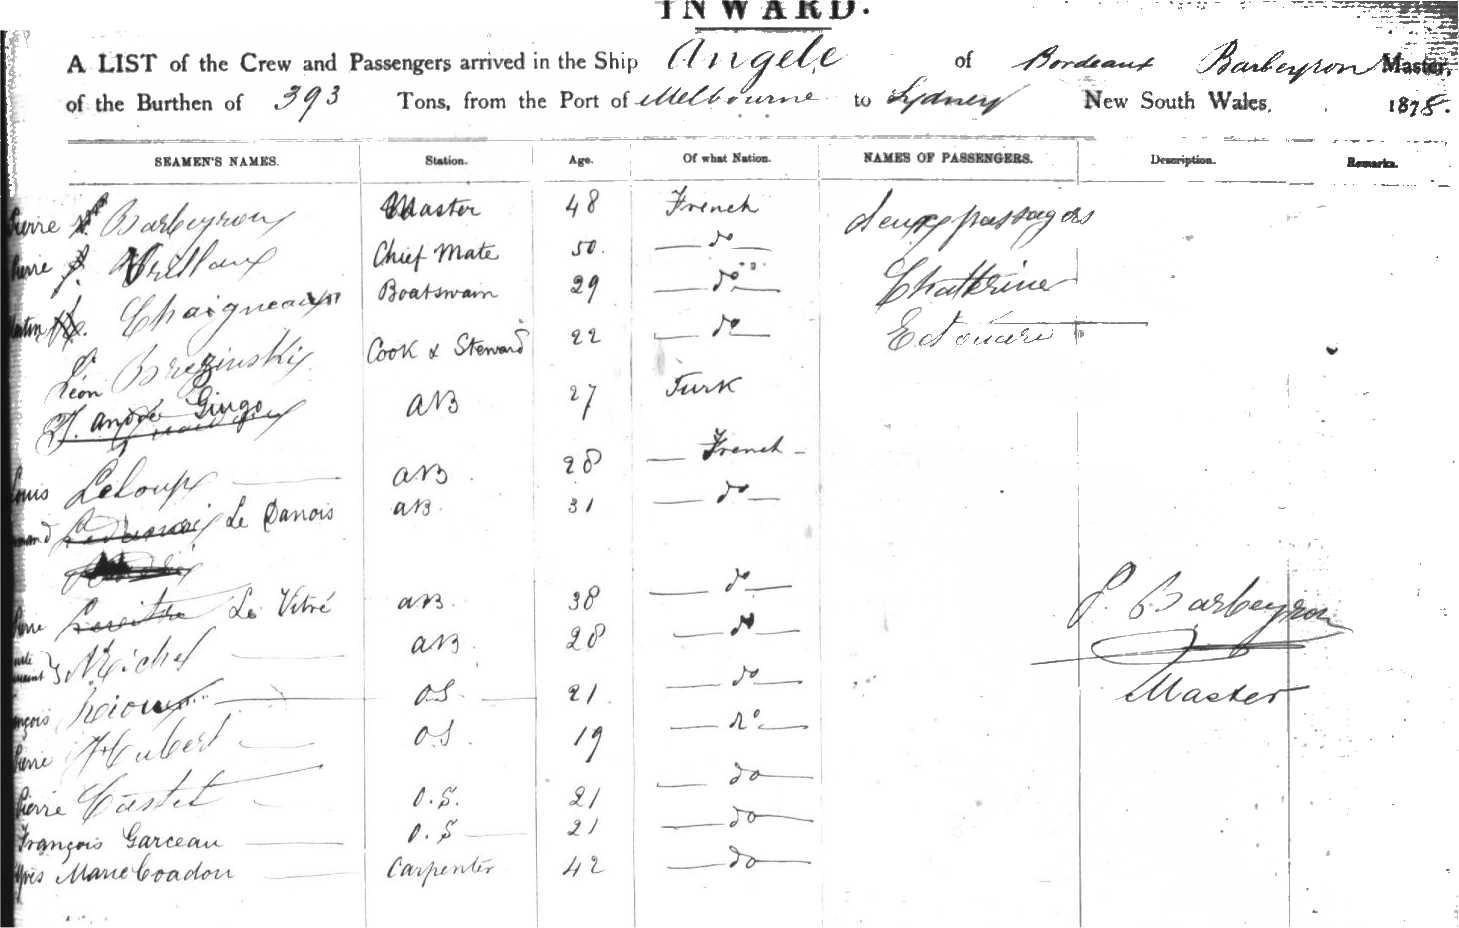 INWARD.
A LIST of the Crew and Passengers arrived in the Ship Angele of Bordeaux Barbeyron Master,
of the Burthen of 393 Tons, from the Port of Melbourne to Sydney New South Wales, 1878.
SEAMEN'S NAMES. Station. Age. Of what Nation. NAMES OF PASSENGERS. Description. Remarks.
Pierre Barbeyron Master 48 French deux passagers
Pierre Chief Mate 50. do
Chaigneau Boatswain 29 do Chatterine
Léon Brezinski Cook & Steward 22 do Edouard
André Gingo AB 27 Turk
Louis Leloup AB 28 French
Le Danois AB 31 do
Pierre Le Vitré AB 38 do
P. Barbeyron
Michel AB 28 do
Master
François Rioux OS 21 do
Pierre Hubert OS 19 do
Pierre Castet O.S. 21 do
François Garceau O.S 21 do
Marie Coadou Carpenter 42 do